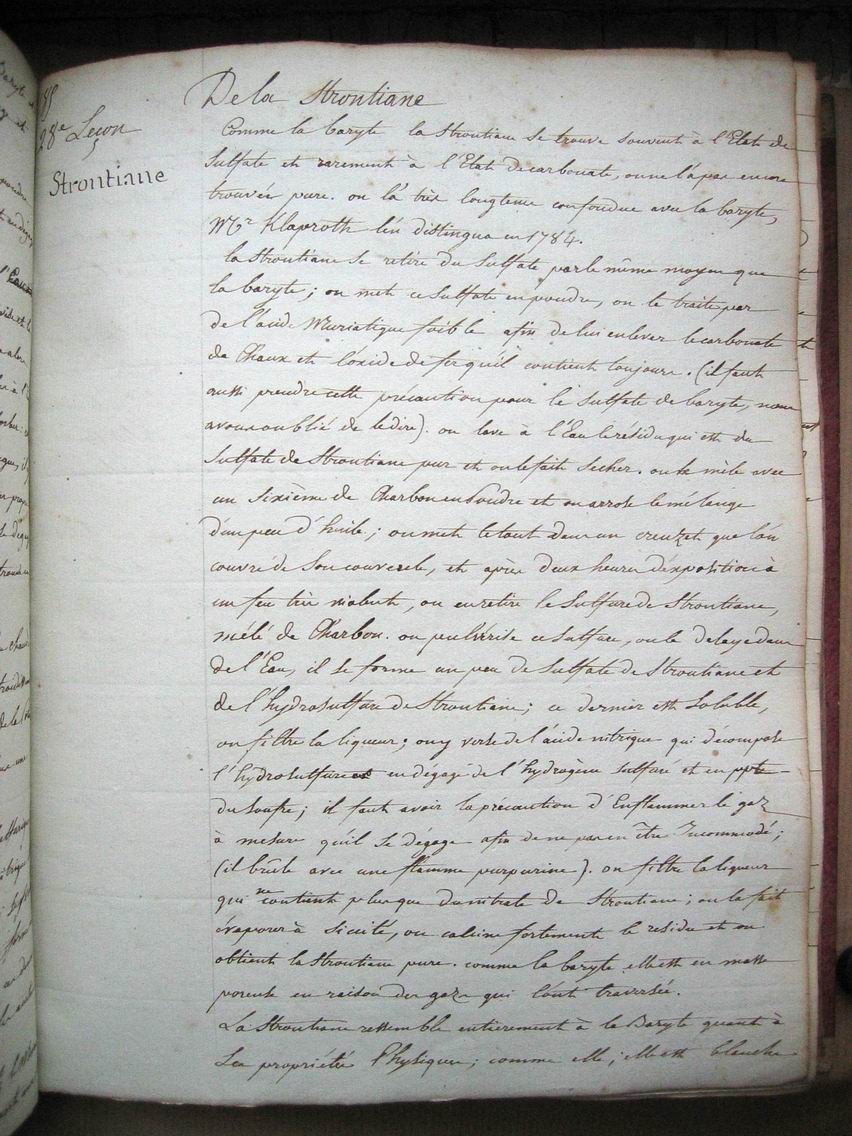 28e Leçon
Strontiane
De la Strontiane
Comme la baryte la Strontiane se trouve souvent à l'Etat de
Sulfate et rarement à l'Etat de carbonate, on ne l'a pas encore
trouvée pure. on l'a très longtems confondue avec la baryte,
Mr Klaproth l'en distingua en 1784.
la Strontiane se retire du Sulfate par le même moyen que
la baryte; on met ce Sulfate en poudre, on le traite par
de l'acide Muriatique foible afin de lui enlever le carbonate
de Chaux et l'oxide de fer qu'il contient toujours. (il faut
aussi prendre cette précaution pour le Sulfate de baryte, nous
avons oublié de le dire). on lave à l'Eau le residu qui est du
Sulfate de Strontiane pur et on le fait secher. on le mêle avec
un Sixième de Charbon en Poudre et on arrose le mélange
d'un peu d'huile; on met le tout dans un creuzet que l'on
couvre de Son couvercle, et après deux heures d'exposition à
un feu très violent, on en retire le Sulfure de Strontiane,
mélé de Charbon. on pulvérise ce Sulfure, on le delaye dans
de l'Eau, il se forme un peu de Sulfate de Strontiane et
de l'hydrosulfure de Strontiane; ce dernier est Soluble,
on filtre la liqueur; on y verse de l'acide nitrique qui décompose
l'hydrosulfure en dégage de l'hydrogène Sulfuré et en ppte
du Soufre; il faut avoir la précaution d'Enflammer le gaz
à mesure qu'il se dégage afin de ne pas en être Incommodé;
(il brûle avec une flamme purpurine). on filtre la liqueur
qui ne contient plus que du nitrate de Strontiane; on la fait
évaporer à Siccité, on calcine fortement le residu et on
obtient la Strontiane pure. comme la baryte elle est en masse
poreuse en raison des gazs qui l'ont traversée.
La Strontiane ressemble entièrement à la Baryte quant à
Ses propriétés Physiques; comme elle, elle est blanche